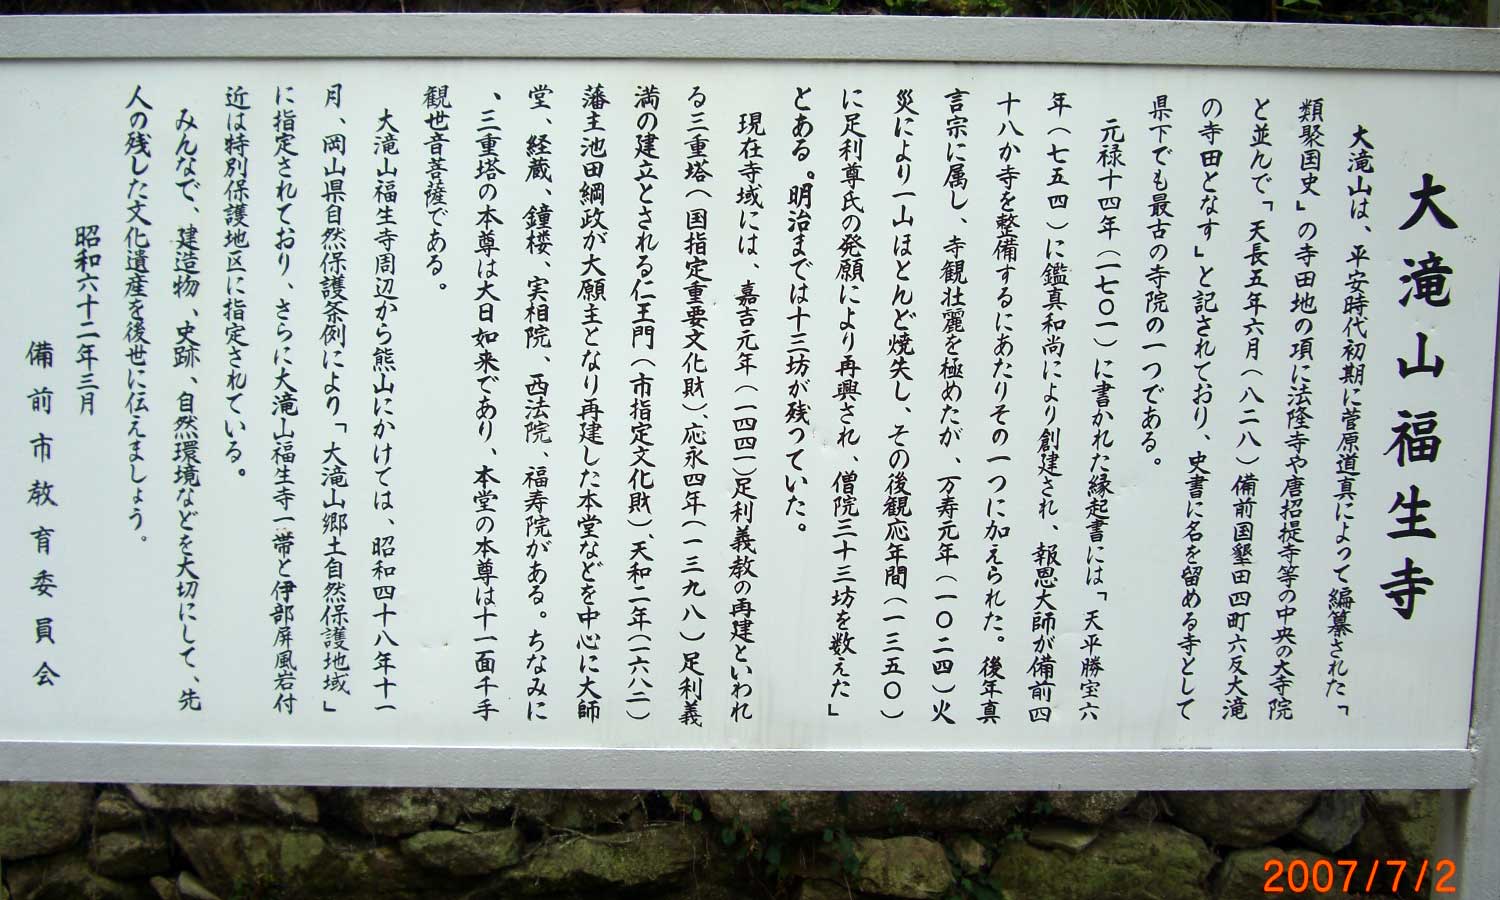 大滝山福生寺
大滝山は、平安時代初期に菅原道真によって編纂された「
類聚国史」の寺田地の項に法隆寺や唐招提寺等の中央の大寺院
と並んで、「天長五年六月(八二八)備前国墾田四町六反大滝
の寺田となす」と記されており、史書に名を留める寺として
県下でも最古の寺院の一つである。
元禄十四年(一七〇一)に書かれた縁起書には「天平勝宝六
年(七五四)に鑑真和尚により創建され、報恩大師が備前四
十八か寺を整備するにあたりその一つに加えられた。後年真
言宗に属し、寺観壮麗を極めたが、万寿元年(一〇二四)火
災により一山ほとんど焼失し、その後観応年間(一三五〇)
に足利尊氏の発願により再興され、僧院三十三坊を数えた」
とある。明治までは十三坊が残っていた。
現在寺域には、嘉吉元年(一四四一)足利義教の再建といわれ
る三重塔(国指定重要文化財)、応永四年(一三九八)足利義
満の建立とされる仁王門(市指定文化財)、天和二年(一六八二)
藩主池田綱政が大願主となり再建した本堂などを中心に大師
堂、経蔵、鐘楼、実相院、西法院、福寿院がある。ちなみに
、三重塔の本尊は大日如来であり、本堂の本尊は十一面千手
観世音菩薩である。
大滝山福生寺周辺から熊山にかけては、昭和四十八年十一
月、岡山県自然保護条例により「大滝山郷土自然保護地域」
に指定されており、さらに大滝山福生寺一帯と伊部屏風岩付
近は特別保護地区に指定されている。
みんなで、建造物、史跡、自然環境などを大切にして、先
人の残した文化遺産を後世に伝えましょう。
昭和六十二年三月
備前市教育委員会
2007/7/2